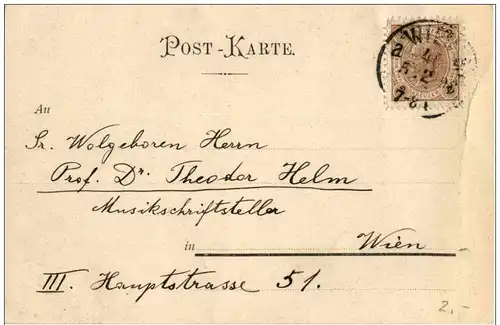 POST-KARTE.
WIEN
An
Sr. Wolgeboren Herrn
Prof. Dr. Theodor Helm
Musikschriftsteller
in Wien
III. Hauptstrasse 51.
2,-